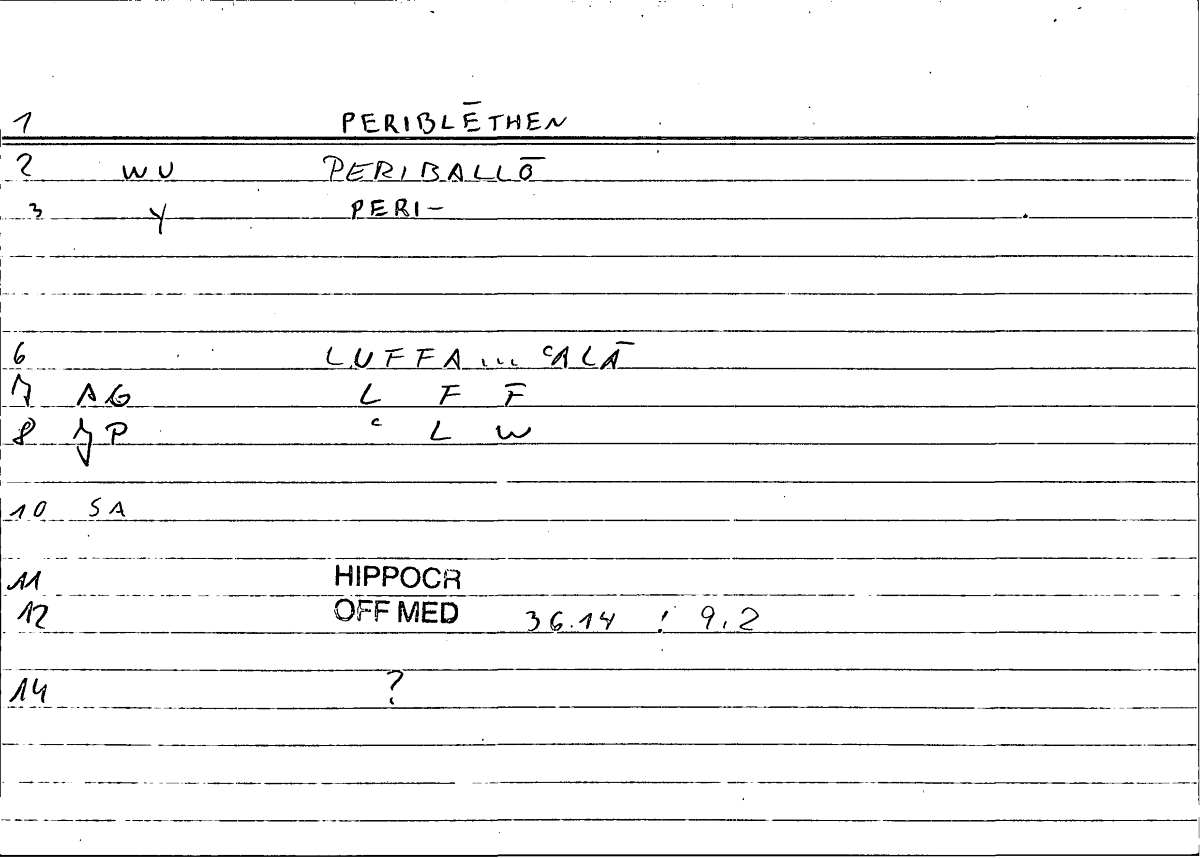 1 PERIBLĒTHEN
2 WU PERIBALLŌ
3 Y PERI-
6 LUFFA... ᶜALĀ
7 AG L F F̄
8 JP ᶜ L W
10 SA
11 HIPPOCR
12 OFF MED 36.14 ; 9,2
14 ?